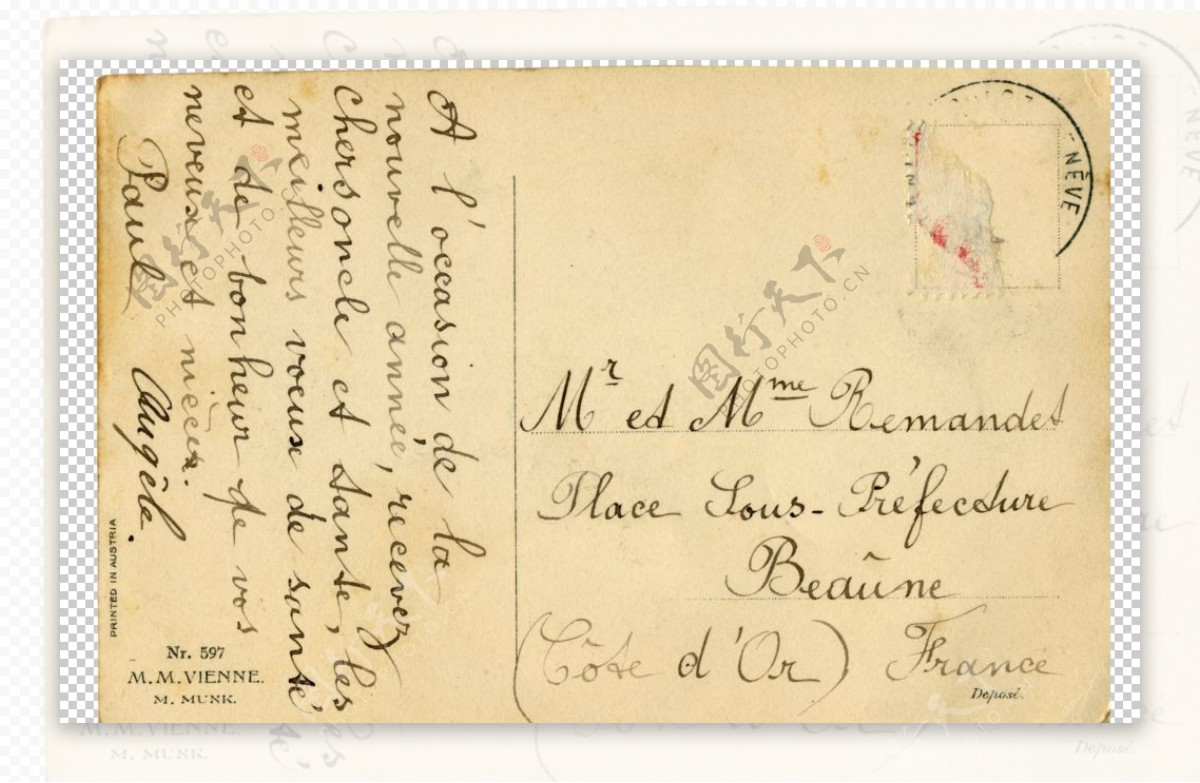 A l'occasion de la
nouvelle année, recevez
chers oncle et tante, les
meilleurs voeux de santé
et de bonheur de vos
neveux et nièces.
Paul Augèle.
PRINTED IN AUSTRIA
Nr. 597
M. M. VIENNE.
M. MUNK.
NÈVE
Mr et Mme Remandet
Place Sous-Préfecture
Beaûne
(Côte d'Or) France
Deposé.
图行天下
PHOTOPHOTO.CN